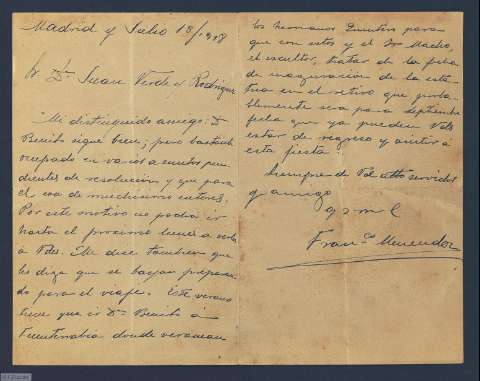 Madrid y Julio 15/1918
Sr. Dn. Juan Verde y Rodriguez
Mi distinguido amigo: Dn
Benito sigue bien, pero bastante
ocupado en varios asuntos pen
dientes de resolucion y que para
el son de muchisimo interes.
Por este motivo no podrá ir
hasta el proximo lunes a verle
á Vdes. Me dice tambien que
les diga que se vayan preparan
do para el viaje. Este verano
tiene que ir Dn Benito á
Fuenterrabia donde veranean
los hermanos Quintero para
que con estos y el Sr Macho,
el escultor, tratar de la fecha
de inauguración de la esta
tua en el retiro que proba
blemente sera para septiembre
fecha que ya pueden Vds
estar de regreso y asistir á
esta fiesta
Siempre de Vd. atto servidor
y amigo
q s m e
Franco Menendez